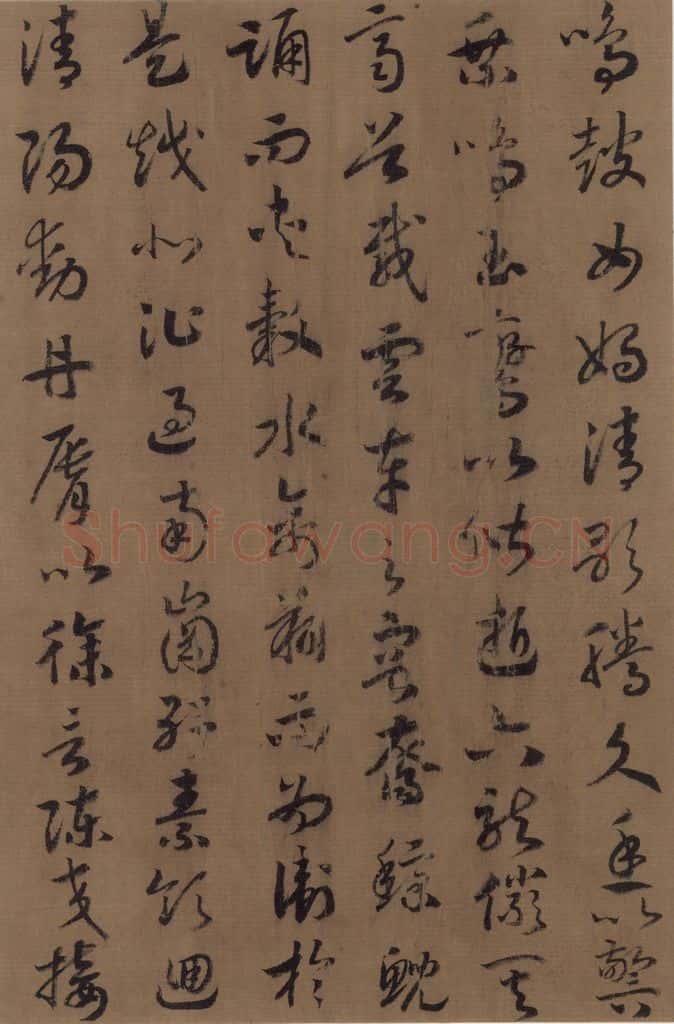 鳴鼓女媧清歌騰文魚以警
乘鳴玉鸞以偕逝六龍儼其
齊首載雲車之容裔鯨鯢
踊而夾轂水禽翔而為衛於
是越北沚過南崗紆素領迴
清陽動丹脣以徐言陳交接
Shufawang.CN